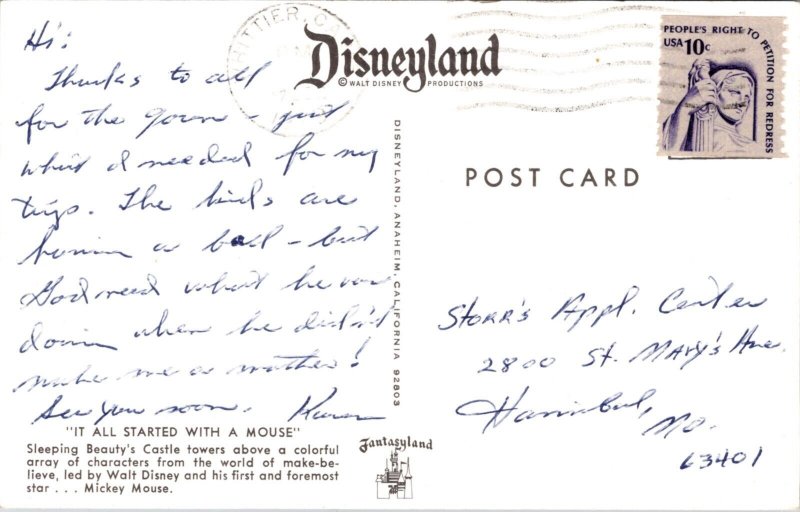 Hi:
Thanks to all
for the gown - just
what I needed for my
trip. The kids are
havin a ball - but
God need what he was
doin when he didn't
make me a mother!
See you soon. Karen
"IT ALL STARTED WITH A MOUSE"
Sleeping Beauty's Castle towers above a colorful
array of characters from the world of make-be-
lieve, led by Walt Disney and his first and foremost
star . . . Mickey Mouse.
WHITTIER, CA
Disneyland
© WALT DISNEY PRODUCTIONS
DISNEYLAND, ANAHEIM, CALIFORNIA 92803
Fantasyland
PEOPLE'S RIGHT TO PETITION FOR REDRESS
USA 10c
POST CARD
Storr's Appl. Center
2800 St. Mary's Ave.
Hannibal,
Mo.
63401